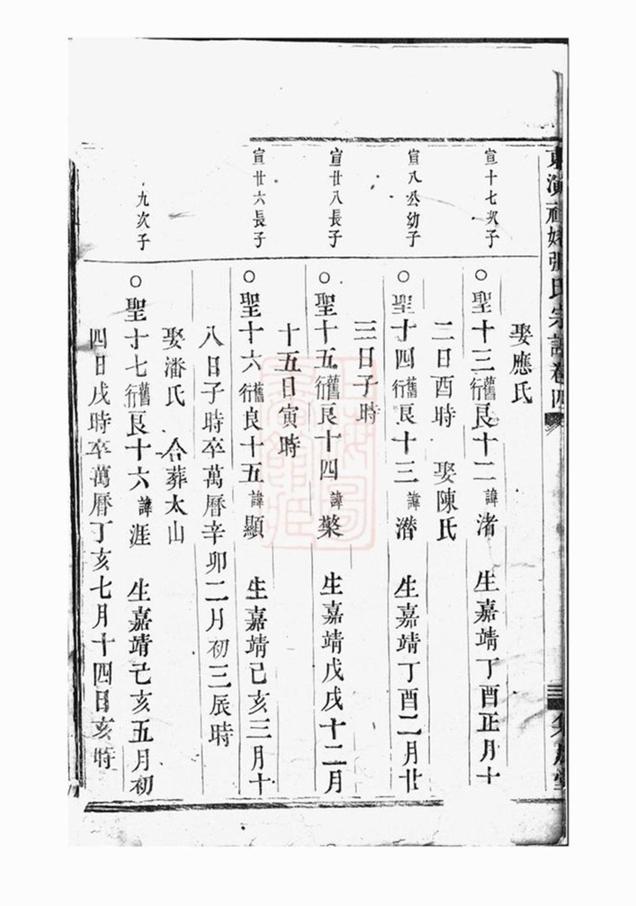 東演祖婆張氏宗譜卷四
娶應氏
宣十七次子
○聖十三舊行良十二諱渚 生嘉靖丁酉正月十
二日酉時 娶陳氏
宣八公幼子
○聖十四舊行良十三諱潛 生嘉靖丁酉二月廿
三日子時
宣廿八長子
○聖十五舊行良十四諱槳 生嘉靖戊戌十二月
十五日寅時
宣廿六長子
○聖十六舊行良十五諱顯 生嘉靖己亥三月十
八日子時卒萬曆辛卯二月初三辰時
娶潘氏 合葬太山
九次子
○聖十七舊行良十六諱涯 生嘉靖己亥五月初
四日戌時卒萬曆丁亥七月十四日亥時